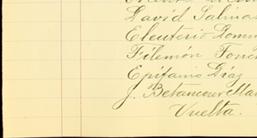 David Salma
Eleuterio Domin
Filemón Fon
Epifanio Diaz
J. Betancourt Man
Vuelta.